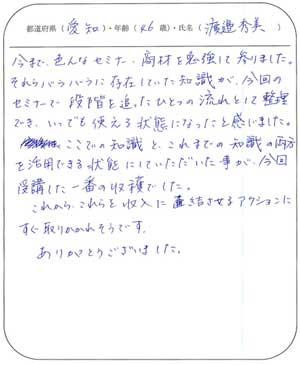 都道府県（愛知）・年齢（46歳）・氏名（渡邉秀美）
今まで、色んなセミナー、商材を勉強して参りました。
それらバラバラに存在していた知識が、今回の
セミナーで段階を追ったひとつの流れとして整理
でき、いつでも使える状態になったと感じました。
ここでの知識と、これまでの知識の両方
を活用できる状態にしていただいた事が、今回
受講した一番の収穫でした。
これから、これらを収入に直結させるアクションに
すぐ取りかかれそうです。
ありがとうございました。